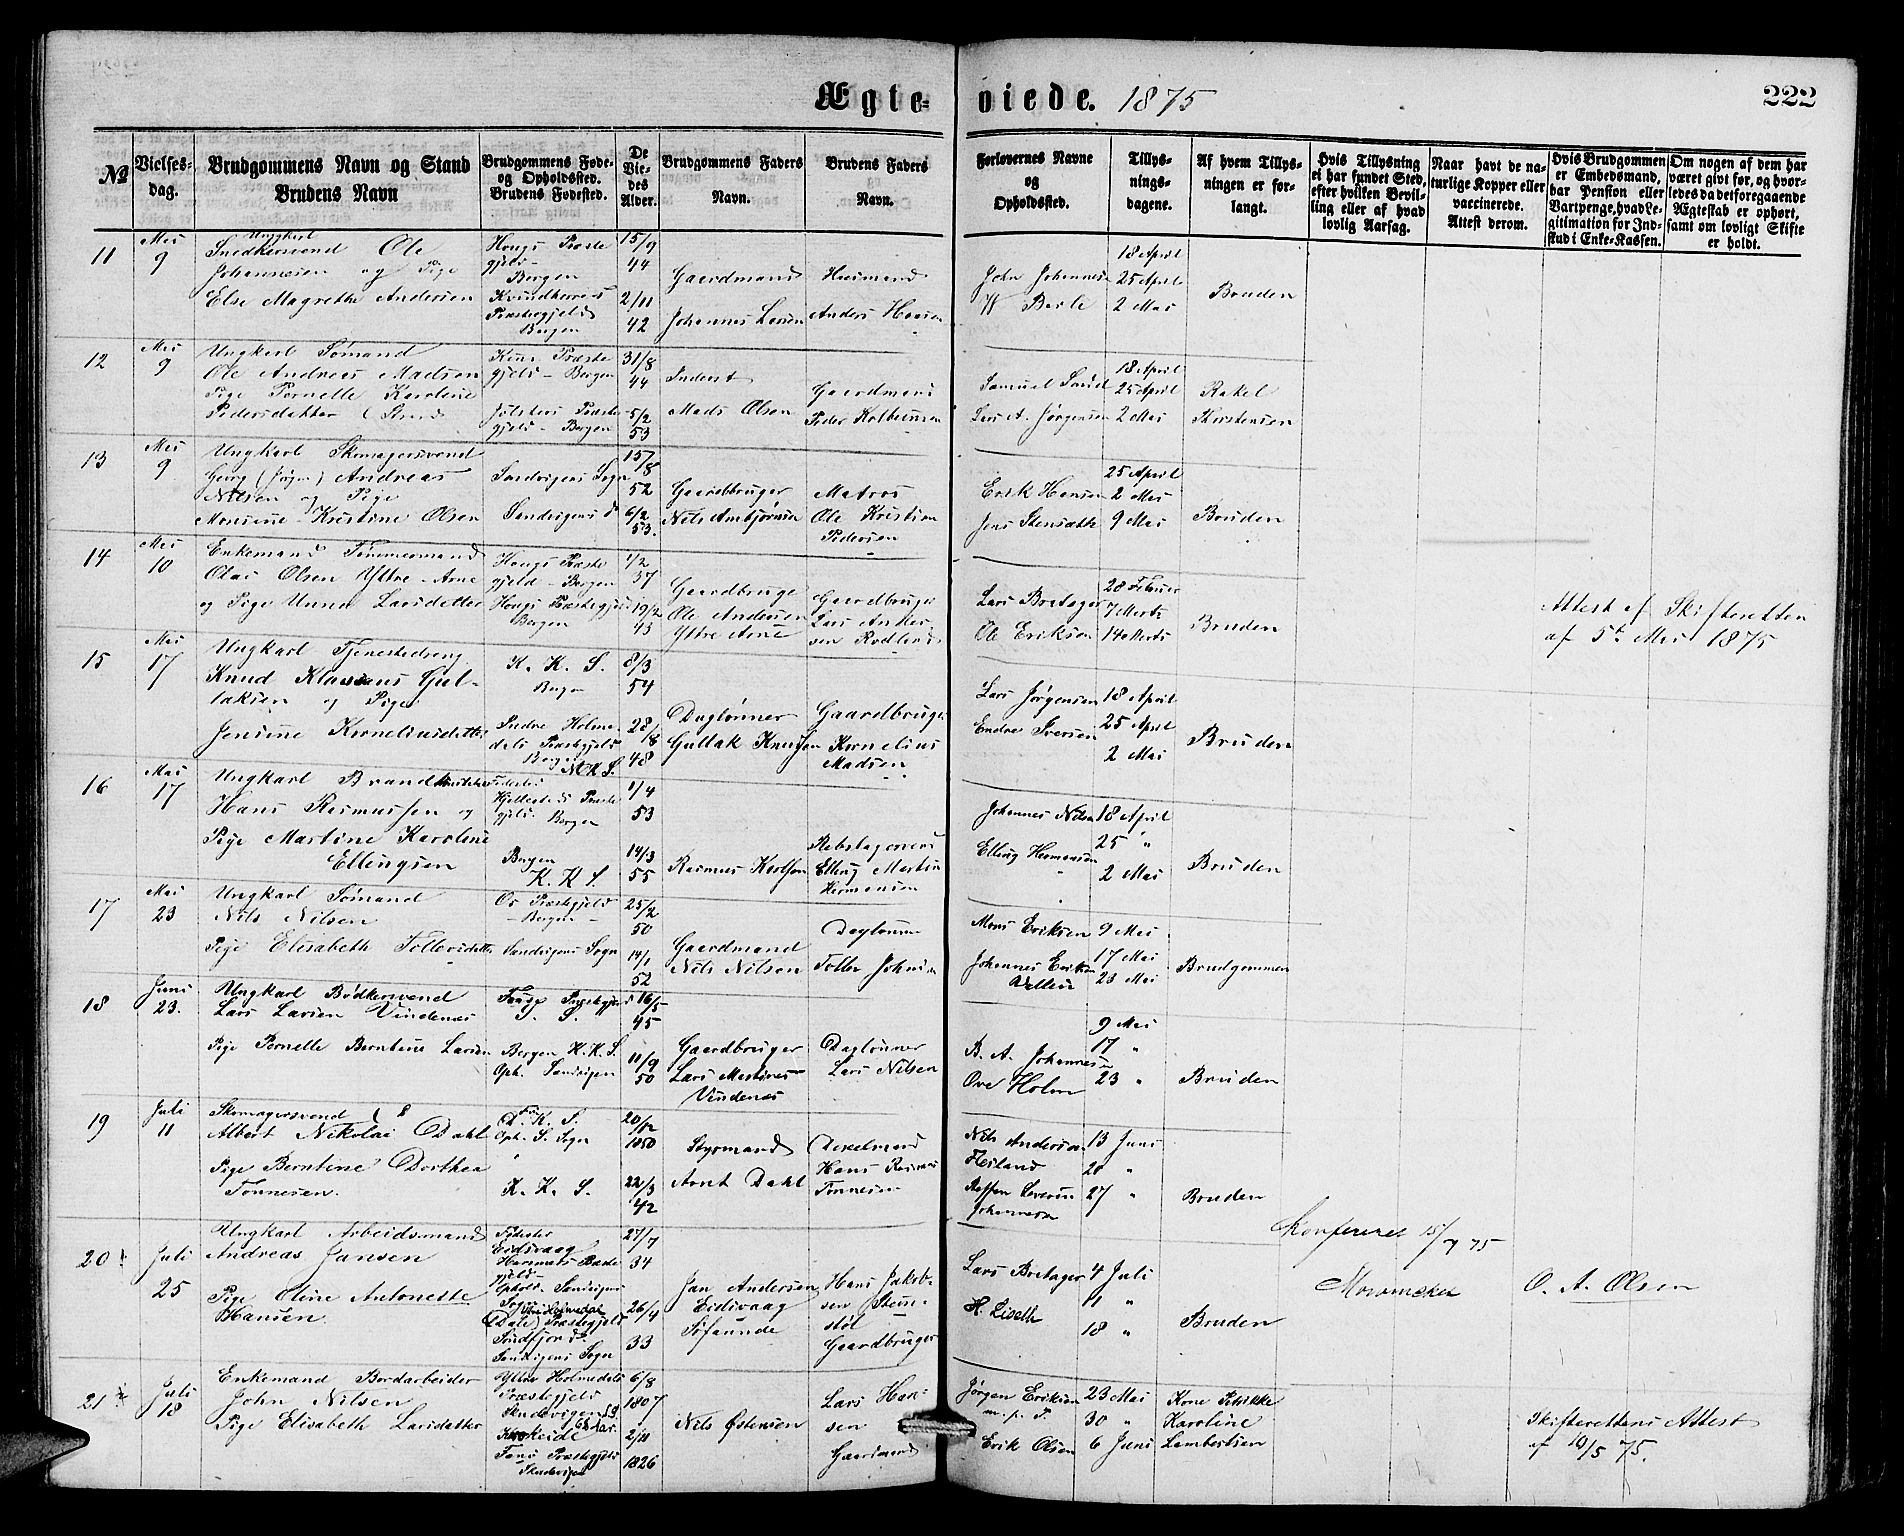 Ægte-
viede. 1875
222
№
Vielses-
dag.
Brudgommens Navn og Stand
Brudens Navn
Brudgommens Føde-
og Opholdssted.
Brudens Fødested.
De
Vie-
des
Alder.
Brudgommens Faders
Navn.
Brudens Faders
Navn.
Forlovernes Navne
og
Opholdssted.
Tillys-
nings-
dagene.
Af hvem Tillys-
ningen er for-
langt.
Hvis Tillysning
ei har fundet Sted,
efter hvilken Bevil-
ling eller af hvad
lovlig Aarsag.
Naar havt de na-
turlige Kopper eller
vaccinerede.
Attest derom.
Hvis Brudgommen
er Embedsmand,
har Pension eller
Vartpenge, hvad Le-
gitimation for Ind-
skud i Enke-Kassen.
Om nogen af dem har
været givt før, og hvor-
ledes da det foregaaende
Ægteskab er ophørt,
samt om lovligt Skifte
er holdt.
11
Mai
9
Ungkarl
Snedkersvend Ole
Johannesen og Pige
Else Magrethe Andersen
Hougs Præste
gjeld -
Bergen
Præstegjeld
Bergen
15/9
44
2/11
42
Gaardmand
Johannes Larsen
Husmand
Anders Hansen
John Johannes
18 April
25 April
2 Mai
Bruden
12
Mai
9
Ungkarl Sømand
Ole Andreas Madsen
Pige Pernelle Karoline
Pedersdatter
Kinn Præste
gjeld - Bergen
Jølsters Præste
gjeld - Bergen
31/8
44
5/2
53
Inderst
Mads Olsen
Gaardmand
Peder
Samuel
Lars A. Jørgensen
18 April
25 April
2 Mai
Rakel
13
Mai
9
Ungkarl Skomagersvend
Georg (Jørgen) Andreas
Nilsen og Pige
Monsine Kristine Olsen
Sandvigens Sogn
Sandvigens
15/8
52
6/2
53.
Gaardbruger
Nils
Matros
Ole Kristian
Pedersen
Erik Hansen
Jens
25 April
2 Mai
9 Mai
Bruden
14
Mai
10
Enkemand Tømmermand
Olai Olsen Yttre-Arne
og Pige Unna Larsdatter
Hougs Præste
gjeld - Bergen
Hougs Præstegjeld
Bergen
1/2
37
19/2
43
Gaardbruger
Ole Andersen
Yttre Arne
Gaardbruger
Lars
Lars Bretager
Ole Eriksen
28 Februar
7 Marts
14 Marts
Bruden
Attest af Skifteretten
af 5te Mai 1875
15
Mai
17
Ungkarl Tjenestedreng
Knud Klausens Gul-
laksen og Pige
Jensine Kornelius datter
K. K. S.
Bergen
Indre Holme
dals Præstegjeld
Bergen
8/3
54
28/8
48
Dagløner
Gullak Knudsen
Gaardbruger
Kornelius
Madsen
Lars Jørgensen
Endre Iversen
18 April
25 April
2 Mai
Bruden
16
Mai
17
Ungkarl Brandkonstabel
Hans Rasmussen og
Pige Martine Karoline
Ellingsen
N. K. S.
Præste
gjeld. Bergen
Bergen
K. K. S.
1/4
53
14/3
55
Rasmus Karlsen
Elling Martin
Hermansen
Johannes Nilsen
Elling Hermansen
18 April
25 "
2 Mai
Bruden
17
Mai
23
Ungkarl Sømand
Nils Nilsen
Pige Elisabeth
Os Præstegjeld
- Bergen -
Sandvigens Sogn
25/2
50
14/1
52
Gaardmand
Nils Nilsen
Dagløner
Mons Eriksen
Johannes Eriksen
9 Mai
17 Mai
23 Mai
Brudgommen
18
Juni
23.
Ungkarl Bødkersvend
Lars Larsen Vindenæs
Pige Pernelle Berntine Larsen
Præstegjeld
S. S.
Bergen K. K. S.
Oph. Sandvigen
16/5
45
11/9
50
Gaardbruger
Lars
Vindenæs
Dagløner
Lars Nilsen
B. A. Johannesen
Ove Holm
9 Mai
17 "
23 "
Bruden
19
Juli
11
Skomagersvend
Albert Nikolai Dahl
Pige Berntine Dorthea
Tønnesen.
D. K. S.
Oph. S. Sogn
K. K. S.
20/12
1850
22/3
42
Styrmand
Arnt Dahl
Hans
Tønnesen
Nils Andersen
Steffen Severin
Johannesen
13 Juni
20 "
27 "
Bruden
Konfereret 15/9 75
20
Juli
25
Ungkarl Arbeidsmand
Andreas Jansen
Pige Oline Antonette
Hansen
Fødested
Eidsvaag
Ophold. Sandvigens
Sogn
(Dale) Præstegjeld
Søndfjord.
Sandvigens Sogn
27/7
34
26/4
33
Jan Andersen
Eidsvaag
Hans Jakob-
sen
Gaardbruger
Lars Bretager
H. Liseth
4 Juli
11 "
18 "
Bruden
O. A. Olsen
21
Juli
18
Enkemand Bordarbeider
John Nilsen
Pige Elisabeth Larsdatter
Ytre Holmedals
Præstegjeld
Sandvigen
Fane Præstegjeld
Sandvigen
6/8
1807
2/11
1826
Nils Østensen
Lars Han-
sen
Gaardmand
Jørgen Eriksen
m. p. P.
Erik Olsen
23 Mai
30 "
6 Juni
Kone
Karoline
Lambertsen
Skifterettens Attest
af 19/5 75.